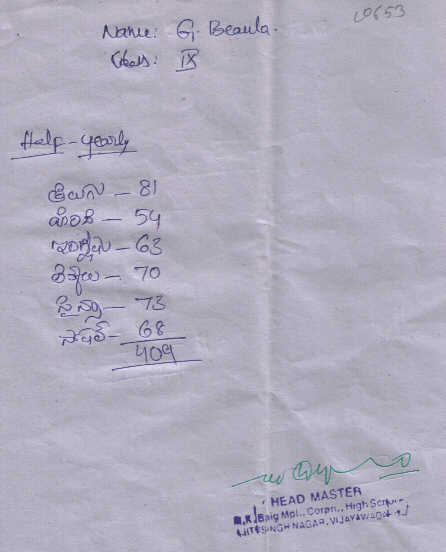 10653
Name: G. Beaula.
Class: IX
Half-yearly
తెలుగు — 81
హిందీ — 54
ఇంగ్లీషు — 63
లెక్కలు — 70
సైన్సు — 73
సోషల్ — 68
409
HEAD MASTER
M.K. Baig Mpl., Corpn., High School
AJITSINGH NAGAR, VIJAYAWADA